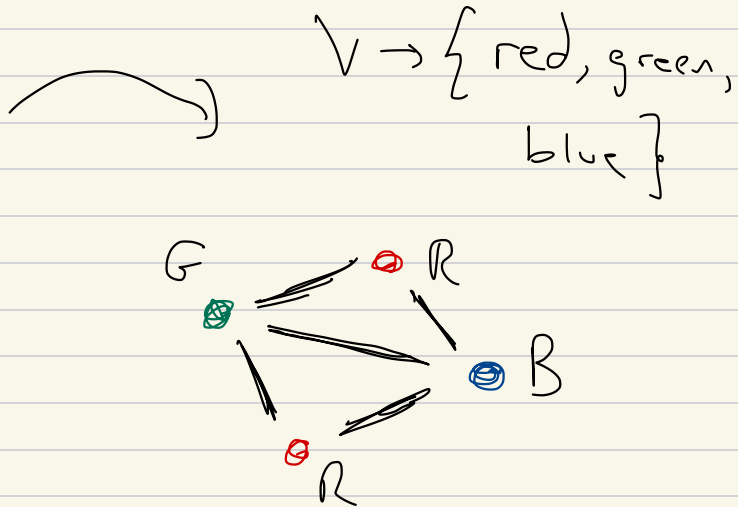 V → { red, green,
blue }
G
R
B
R